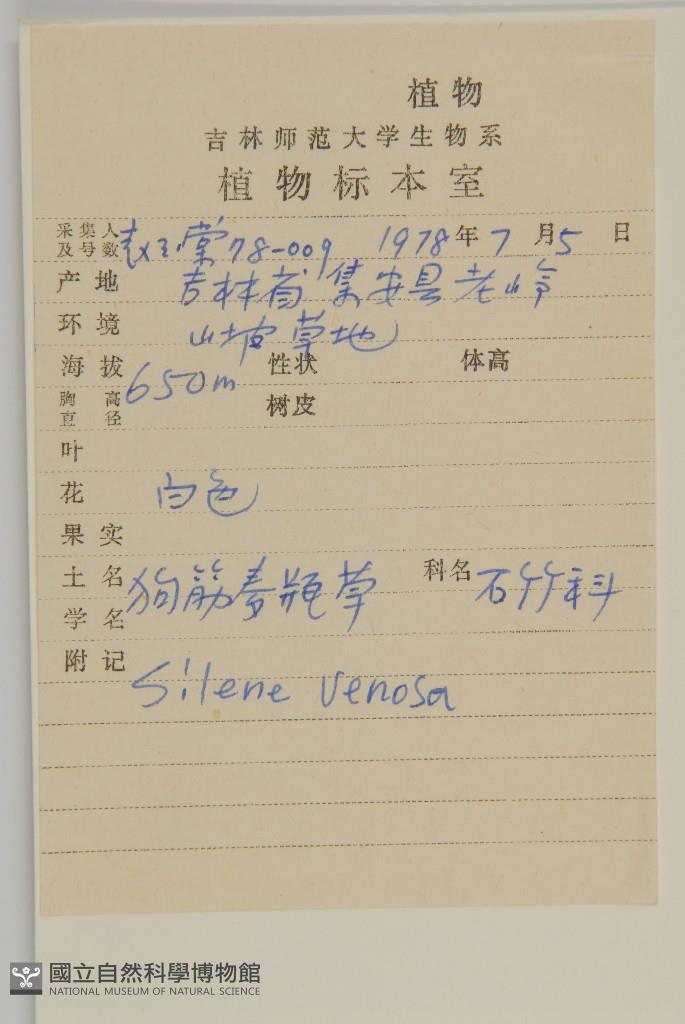 植物
吉林师范大学生物系
植物标本室
采集人及号数 赵玉堂 78-009 1978年7月5日
产地 吉林省集安县老岭
环境 山坡草地
海拔 650m 性状 体高
胸高直径 树皮
叶
花 白色
果实
土名 狗筋麦瓶草 科名 石竹科
学名
附记 Silene venosa
國立自然科學博物館
NATIONAL MUSEUM OF NATURAL SCIENCE